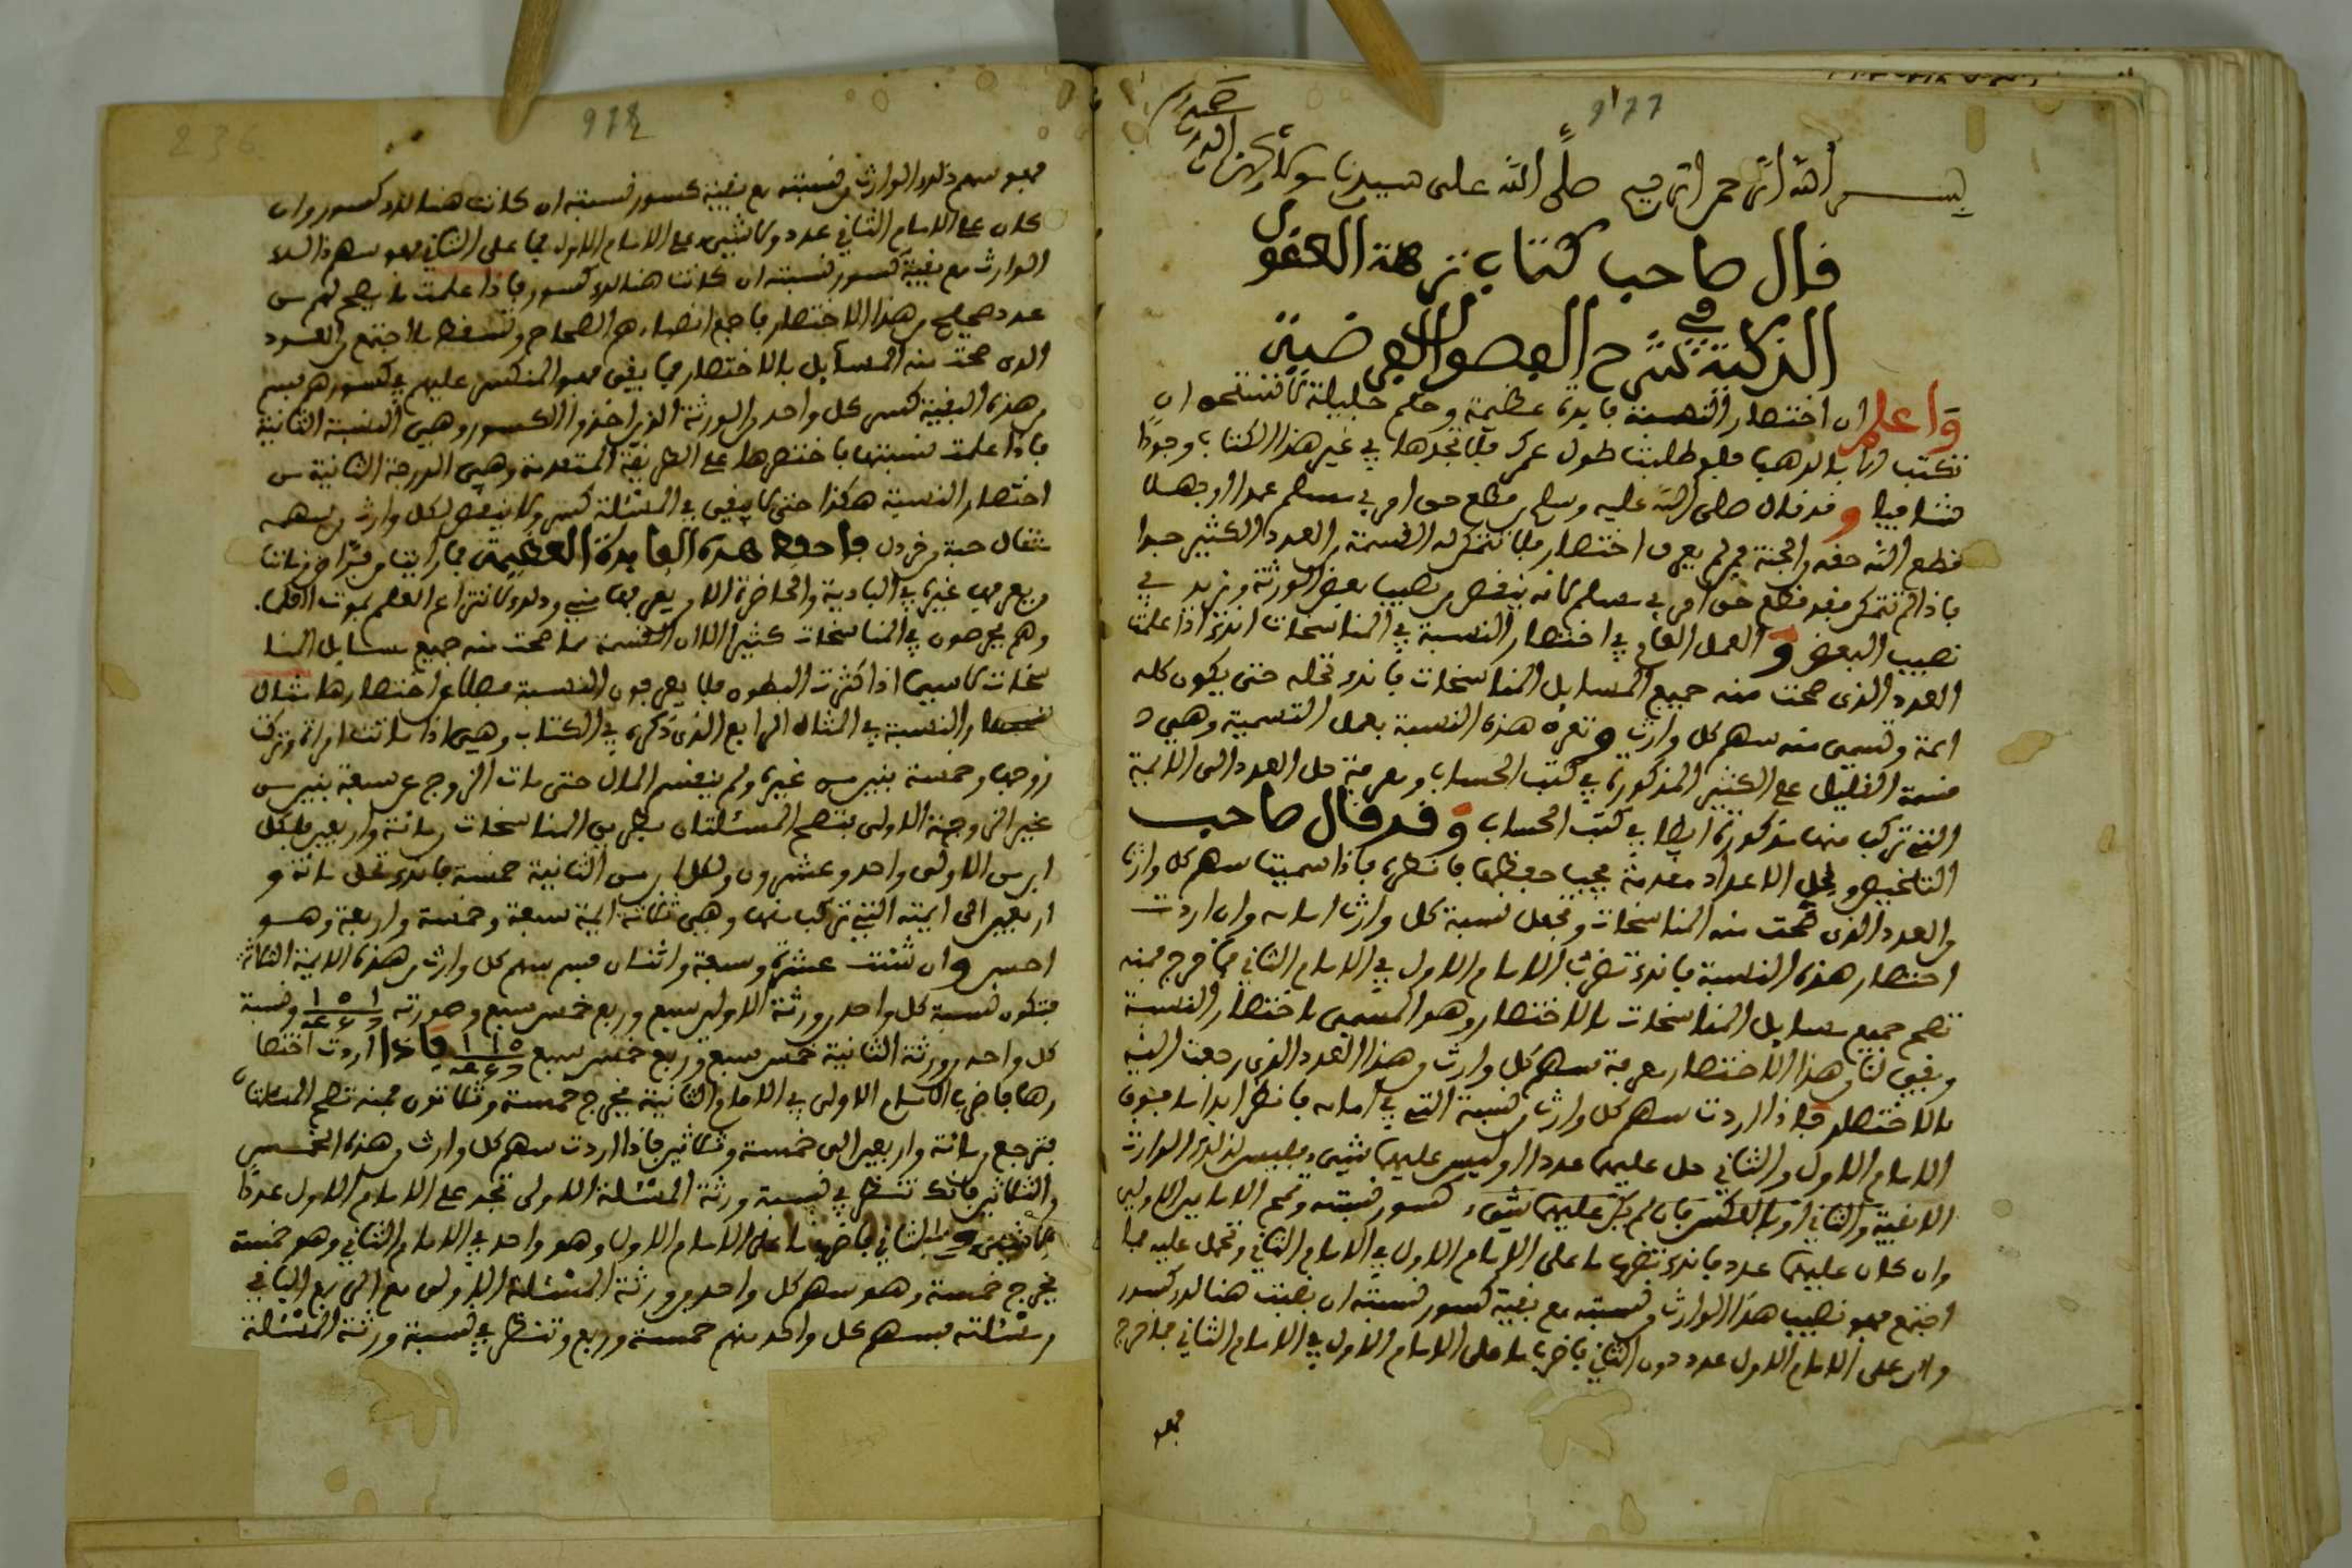 977
بسم الله الرحمن الرحيم صلى الله على سيدنا
قال صاحب كتاب نزهة العقول
الذكية في شرح الفصول الفرضية
واعلم ان اختصار النسبة فايدة عظيمة وحكم جليلة تستحق ان
تكتب بالذهب فلو طلبت طول عمرك فلا تجدها في غير هذا الكتاب وجودا
شافيا وقد قال صلى الله عليه وسلم من قطع حق امرئ مسلم عمدا او جهلا
قطع الله حقه من الجنة فمن لم يعرف اختصار فلا تتمكن له القسمة من العدد الكثير جدا
فاذا لم تتمكن فقد قطع حق امرئ مسلم لانه ينقص من نصيب بعض الورثة ويزيد في
نصيب البعض والعمل في اختصار النسبة في المناسخات انك اذا علمت
العدد الذي صحت منه جميع المسايل المناسخات فانك تحله حتى يكون كله
ايمة وتسمي منه سهم كل وارث وتعرف هذه النسبة بعمل التسمية وهي
قسمة القليل على الكثير المذكورة في كتب الحساب ومعرفة حل العدد الى الايمة
التي تركب منها مذكورة ايضا في كتب الحساب وقد قال صاحب
التلخيص ولحل الاعداد مقدمة يجب حفظها فانظره فاذا سميت سهم كل وارث
من العدد الذي صحت منه المناسخات وتجعل نسبة كل وارث امامه وان اردت
اختصار هذه النسبة فانك تضرب الامام الاول في الامام الثاني فما خرج فمنه
تصح جميع مسايل المناسخات بالاختصار وهو المسمى باختصار النسبة
وبقي لنا من هذا الاختصار معرفة سهم كل وارث من هذا العدد الذي رجعت اليه
بالاختصار فاذا اردت سهم كل وارث من نسبته التي في امامه فانظر ابدا ما فوق
الامام الاول والثاني هل عليهما عدد او ليس عليهما شيء فليس لذلك الوارث
وان كان عليهما عدد فانك تضرب ما على الامام الاول في الامام الثاني وتحمل عليه فما
اجتمع فهو نصيب هذا الوارث من نسبته مع بقية كسور نسبته ان بقيت هنالك كسور
وان على الامام الاول عدد دون الثاني فاضرب ما على الامام الاول في الامام الثاني فما خرج
فهو
978
236
فهو سهم ذلك الوارث من نسبته مع بقية كسور نسبته ان كانت هنالك كسور وان
كان على الامام الثاني عدد ولا شيء على الامام الاول فما على الثاني فهو سهم ذلك
الوارث مع بقية كسور نسبته ان كانت هنالك كسور فاذا علمت ما يصح لهم من
عدد صحيح من هذا الاختصار فاجمع انصباءهم الصحاح وتسقط ما اجتمع من العدد
الذي صحت منه المسايل بالاختصار فما بقي فهو المنكسر عليهم في كسورهم
من هذه البقية كسر كل واحد من الورثة الذين اخذوا الكسور وهي النسبة الثانية
فاذا علمت نسبتها فاختصرها على الطريقة المتقدمة وهي الدرجة الثانية من
اختصار النسبة هكذا حتى لا يبقى في المسئلة كسر ولا ينقص لكل وارث من سهمه
مثقال حبة من خردل فاحفظ هذه الفايدة العظيمة فما رايت من قرا في زماننا
من يعرفها غيري في البادية والحاضرة الا من يعرفها مني وذلك لانتزاع العلم بموت اهله
وهم يحرصون في المناسخات كثيرا الا ان القسمة مما صحت منه جميع مسايل المنا
سخات لا سيما اذا كثرت البطون فلا يعرفون النسبة فضلا عن اختصارها مثال
النسبة في المثال الرابع الذي ذكره في الكتاب وهي اذا ماتت امراة وتركت
زوجها وخمسة بنين من غيره ولم ينقسم المال حتى مات الزوج عن سبعة بنين من
غير الزوجة الاولى فتصح المسئلتان بطريق المناسخات من مائة واربعين فلكل
ابن من الاولى واحد وعشرون ولكل ابن من الثانية خمسة فانك تحل مائة و
اربعين الى ايمته التي تركب منها وهي ثلاثة ايمة سبعة وخمسة واربعة وهو
احسن وان شئت عشرة وسبعة واثنان فسم سهم كل وارث من هذه الايمة الثلاثة
فتكون نسبة كل واحد من ورثة الاولى سبع وربع خمس سبع وصورته ونسبة
كل واحد من ورثة الثانية خمس سبع وربع خمس سبع فاذا اردت اختصا
رها فاضرب الامام الاول في الامام الثانية يخرج خمسة وثلاثون فمنه تصح المسئلتان
فترجع من مائة واربعين الى خمسة وثلاثين فاذا اردت سهم كل وارث من هذه الخمس
والثلاثين فانك تنظر في نسبة ورثة المسئلة الاولى تجد على الامام الاول عددا
الثاني فاضرب ما على الامام الاول وهو واحد في الامام الثاني وهو خمسة
يخرج خمسة وهو سهم كل واحد من ورثة المسئلة الاولى مع الربع الباقي
من مسئلته فسهم كل واحد منهم خمسة وربع وتنظر في نسبة ورثة المسئلة